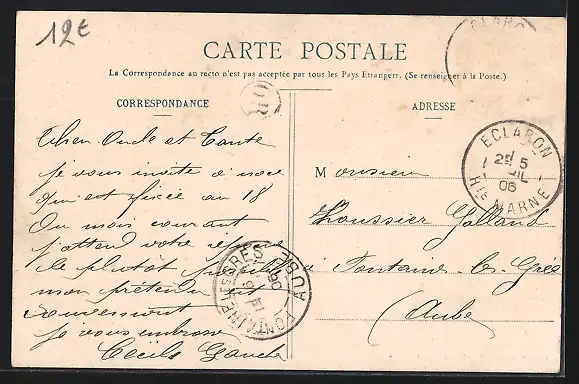 12€
CARTE POSTALE
La Correspondance au recto n'est pas acceptée par tous les Pays Étrangers. (Se renseigner à la Poste.)
CORRESPONDANCE
ADRESSE
OR
Cher Oncle et Tante
je vous invite a noce
qui est fixée au 18
Du mois courant
j'attend votre réponse
le plutôt possible
mon prétendu
je vous embrasse
Cecile
Monsieur
Galland
a Fontaine-les-Grés
(Aube)
ECLARON
25 5
06
HTE MARNE
FONTAINE LES GRES
AUBE